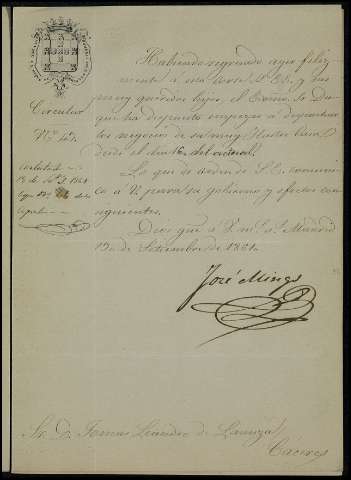 Habiendo regresado aqui feliz-
mente á esta Corte S.E. y sus
muy queridos hijos, el Excmo. Sr. Du-
que ha dispuesto empezar á despachar
los negocios de su muy Ilustre Casa
desde el dia 16 del actual.
Lo que de orden de S.E. comuni-
co á V. para su gobierno y efectos con-
siguientes.
Dios gue á V. m.s a.s Madrid
19 de Setiembre de 1861.
José Mingo
Circular
N.º 43.
Contestada
de 1861
Sr. D. Tomas Leandro de
Cáceres